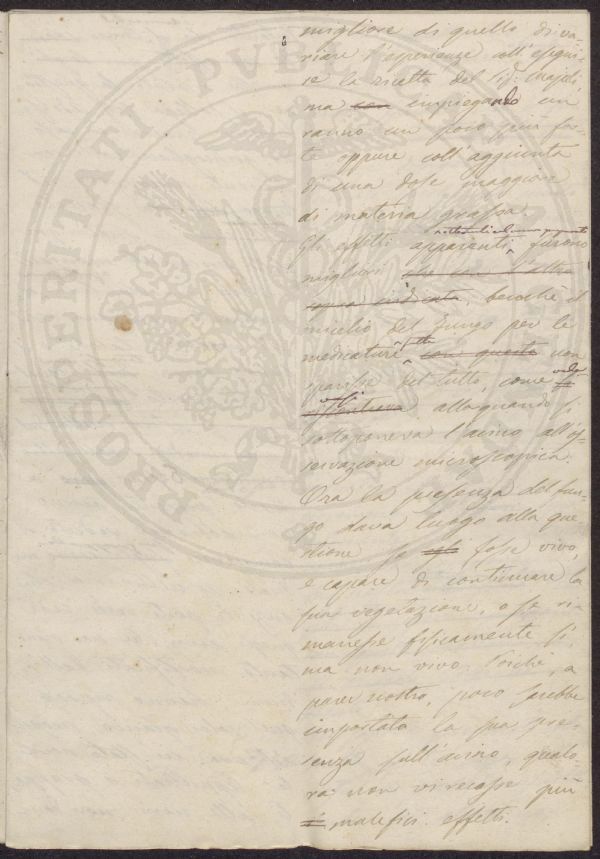 PROSPERITATI PUB
migliore di quello di va-
riare l'esperienze coll'esegui-
re la ricetta del Sig.
ma con impiegando un
ranno un poco più for-
te oppure coll'aggiunta
di una dose maggiore
di materia grassa.
Gli effetti apparenti, furono
migliori che con l'altra
sopra indicata, benchè il
micelio del fungo per le
medicature con questo non
sparisse del tutto, come si
allorquando si
sottoponeva l'acino all'os-
servazione microscopica.
Ora la presenza del fun-
go dava luogo alla que-
stione se egli fosse vivo,
e capace di continuare la
sua vegetazione, o se ri-
manesse fisicamente sì,
ma non vivo. Poichè, a
parer nostro, poco sarebbe
importata la sua pre-
senza sull'acino, qualo-
ra non vi recasse più
i malefici effetti.